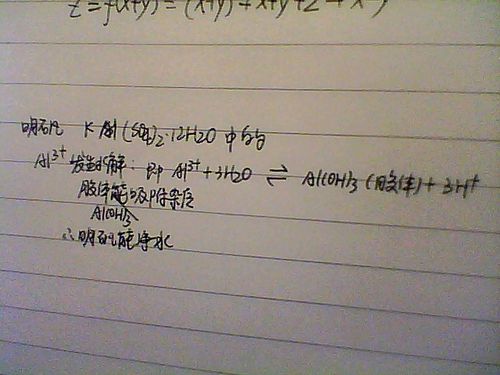 明矾 KAl(SO4)2·12H2O 中的
Al3+ 发生水解: 即 Al3+ + 3H2O ⇌ Al(OH)3 (胶体) + 3H+
胶体能吸附杂质
Al(OH)3
∴明矾能净水